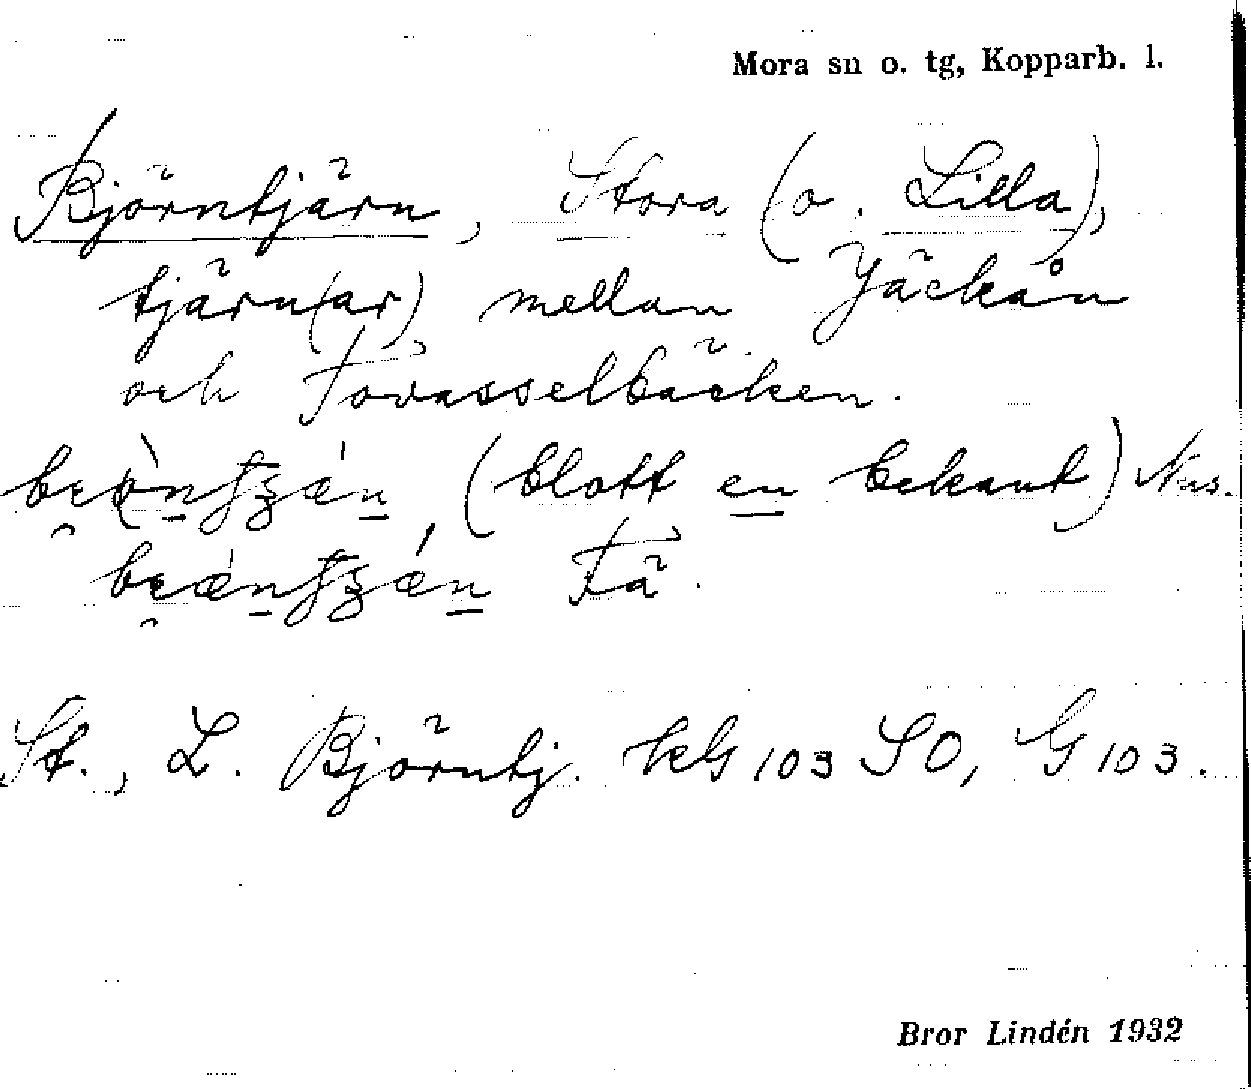 Mora sn o. tg, Kopparb. l.
Björntjärn, Stora (o. Lilla),
tjärn(ar) mellan Jäckån
och Tovasselbäcken.
(blott en bekant) Nus.
Fä.
St., L. Björntj. kG 103 SO, G 103.
Bror Lindén 1932